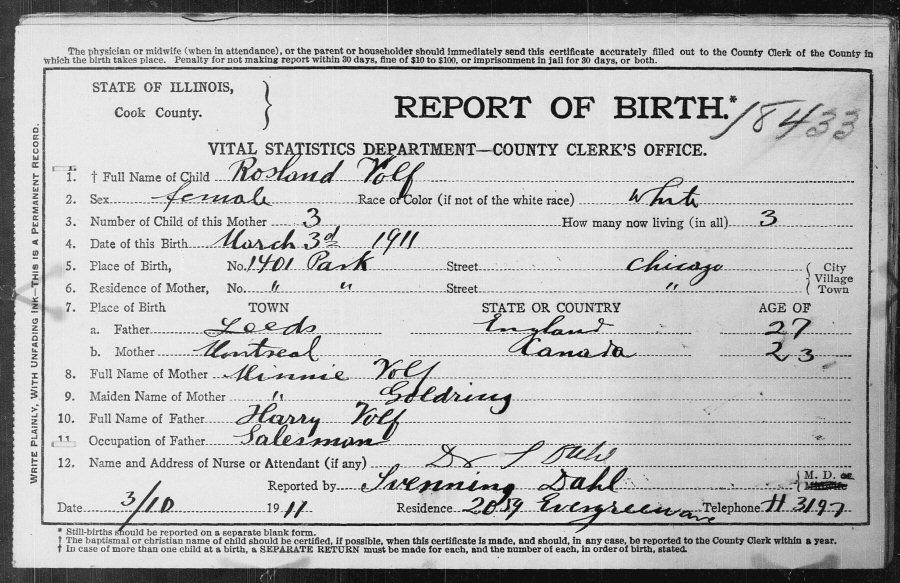 The physician or midwife (when in attendance), or the parent or householder should immediately send this certificate accurately filled out to the County Clerk of the County in
which the birth takes place. Penalty for not making report within 30 days, fine of $10 to $100, or imprisonment in jail for 30 days, or both.
STATE OF ILLINOIS,
Cook County.
REPORT OF BIRTH.* 18433
VITAL STATISTICS DEPARTMENT—COUNTY CLERK'S OFFICE.
1. † Full Name of Child Rosland Volf
2. Sex female Race or Color (if not of the white race) White
3. Number of Child of this Mother 3 How many now living (in all) 3
4. Date of this Birth March 3d 1911
5. Place of Birth, No. 1401 Park Street Chicago City
6. Residence of Mother, No. " " Street " Village Town
7. Place of Birth TOWN STATE OR COUNTRY AGE OF
a. Father Leeds England 27
b. Mother Montreal Kanada 23
8. Full Name of Mother Minnie Volf
9. Maiden Name of Mother " Goldring
10. Full Name of Father Harry Volf
11. Occupation of Father Salesman
12. Name and Address of Nurse or Attendant (if any) Dr S Dahl
Reported by Svenning Dahl M. D. or Midwife
Date 3/10 1911 Residence 2059 Evergreen ave Telephone H 3197
WRITE PLAINLY, WITH UNFADING INK—THIS IS A PERMANENT RECORD.
* Still-births should be reported on a separate blank form.
† The baptismal or christian name of child should be certified, if possible, when this certificate is made, and should, in any case, be reported to the County Clerk within a year.
† In case of more than one child at a birth, a SEPARATE RETURN must be made for each, and the number of each, in order of birth, stated.